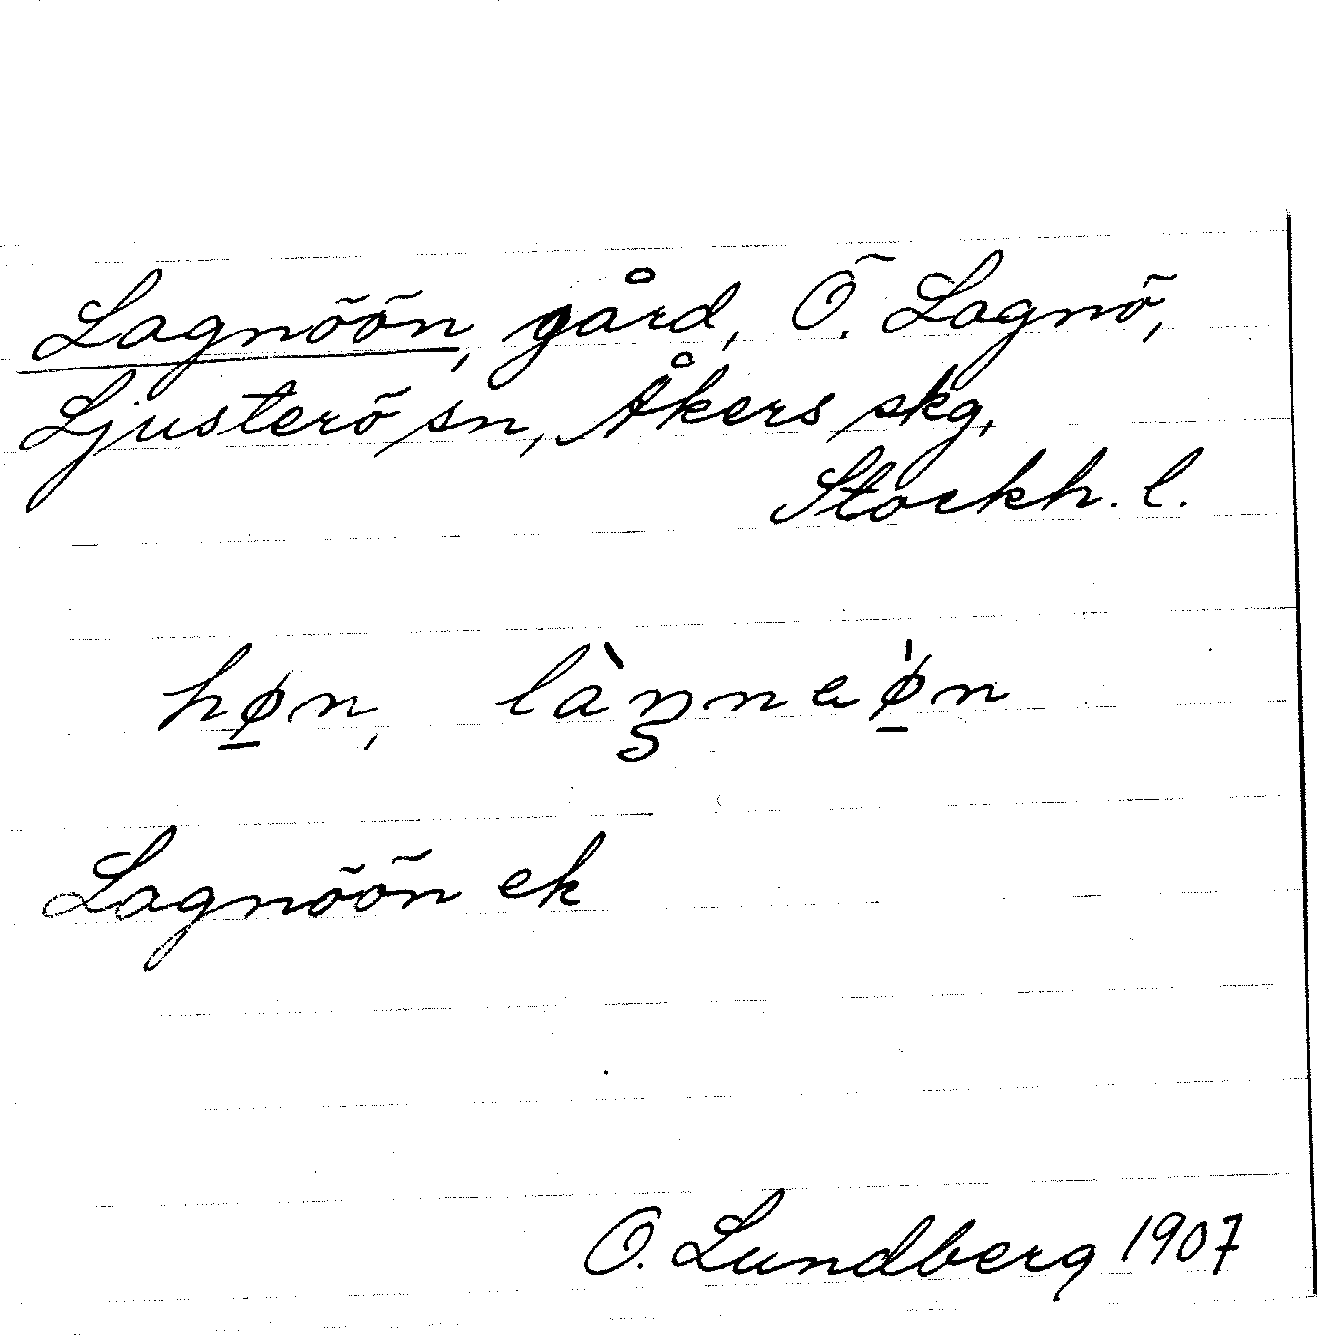 Lagnöön, gård, Ö. Lagnö,
Ljusterö sn, Åkers skg,
Stockh. l.
hø̱n,
Lagnöön ek
O. Lundberg 1907